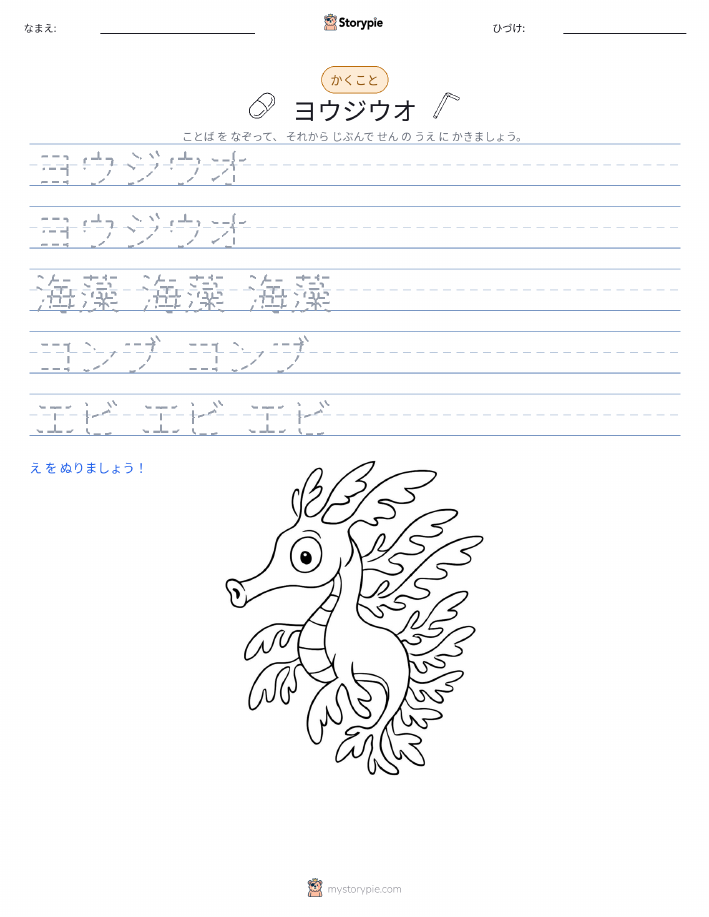 なまえ:
Storypie
ひづけ:
かくこと
ヨウジウオ
ことば を なぞって、 それから じぶんで せん の うえ に かきましょう。
ヨウジウオ
ヨウジウオ
海藻 海藻 海藻
コンブ コンブ
エビ エビ エビ
え を ぬりましょう！
mystorypie.com